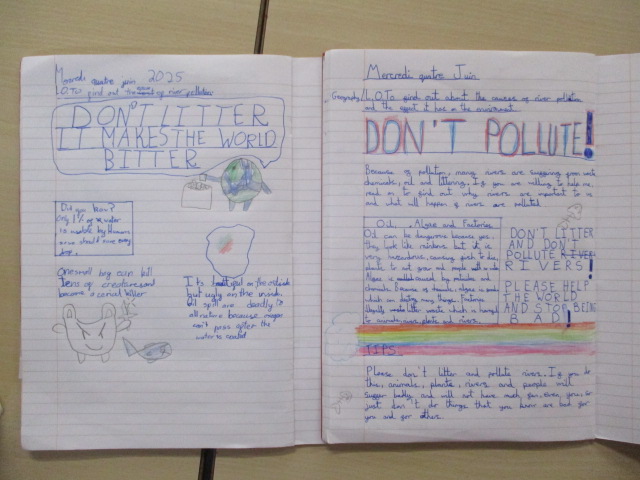 Mercredi quatre juin 2025
L.O. To find out the cause of river pollution
DON'T LITTER
IT MAKES THE WORLD
BITTER
Did you know?
only 1% of water
is usable by Humans
so we should save every
drop.
One small bag can kill
tens of creatures and
become a cerial killer
It's beautiful on the outside
but ugly on the inside.
Oil spill are deadly to
all nature because
can't pass after the
water is sealed
Mercredi quatre Juin
Geography L.O. To find out about the causes of river pollution
and the effect it has on the enviroment
DON'T POLLUTE!
Because of pollution, many rivers are suffering from waste
chemicals, oil and littering. If you are willing to help me,
read on to find out why rivers are important to us
and what will happen if rivers are polluted
Oil, Algae and Factories
Oil can be dangerous because yes
they look like rainbows but it is
very hazardous, causing fish to die,
plants to not grow and people
Algae is
chemicals. Because of chemicals, algae is made
which can destroy many things. Factories
illegally waste which is harmful
to animals, plants and rivers.
DON'T LITTER
AND DON'T
POLLUTE RIVER
RIVERS!
PLEASE HELP
THE WORLD
AND STOP BEING
BAD!
TIPS
Please don't litter and pollute rivers. If you do
this, animals, plants, rivers and people will
suffer badly and will not have much fun, even you, so
just don't do things that you know are bad for
you and for others.